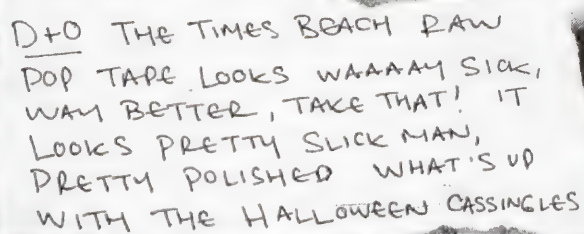 D+O THE TIMES BEACH RAW
POP TAPE LOOKS WAAAAY SICK,
WAY BETTER, TAKE THAT! IT
LOOKS PRETTY SLICK MAN,
PRETTY POLISHED WHAT'S UP
WITH THE HALLOWEEN CASSINGLES